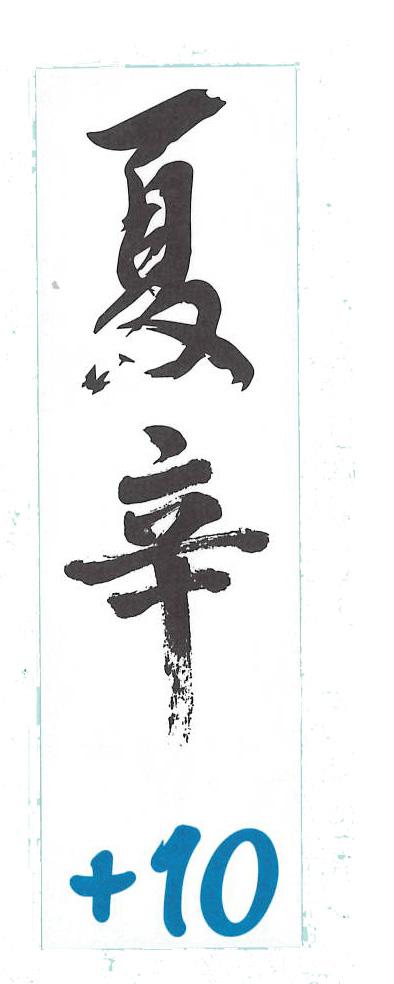 夏辛
+10